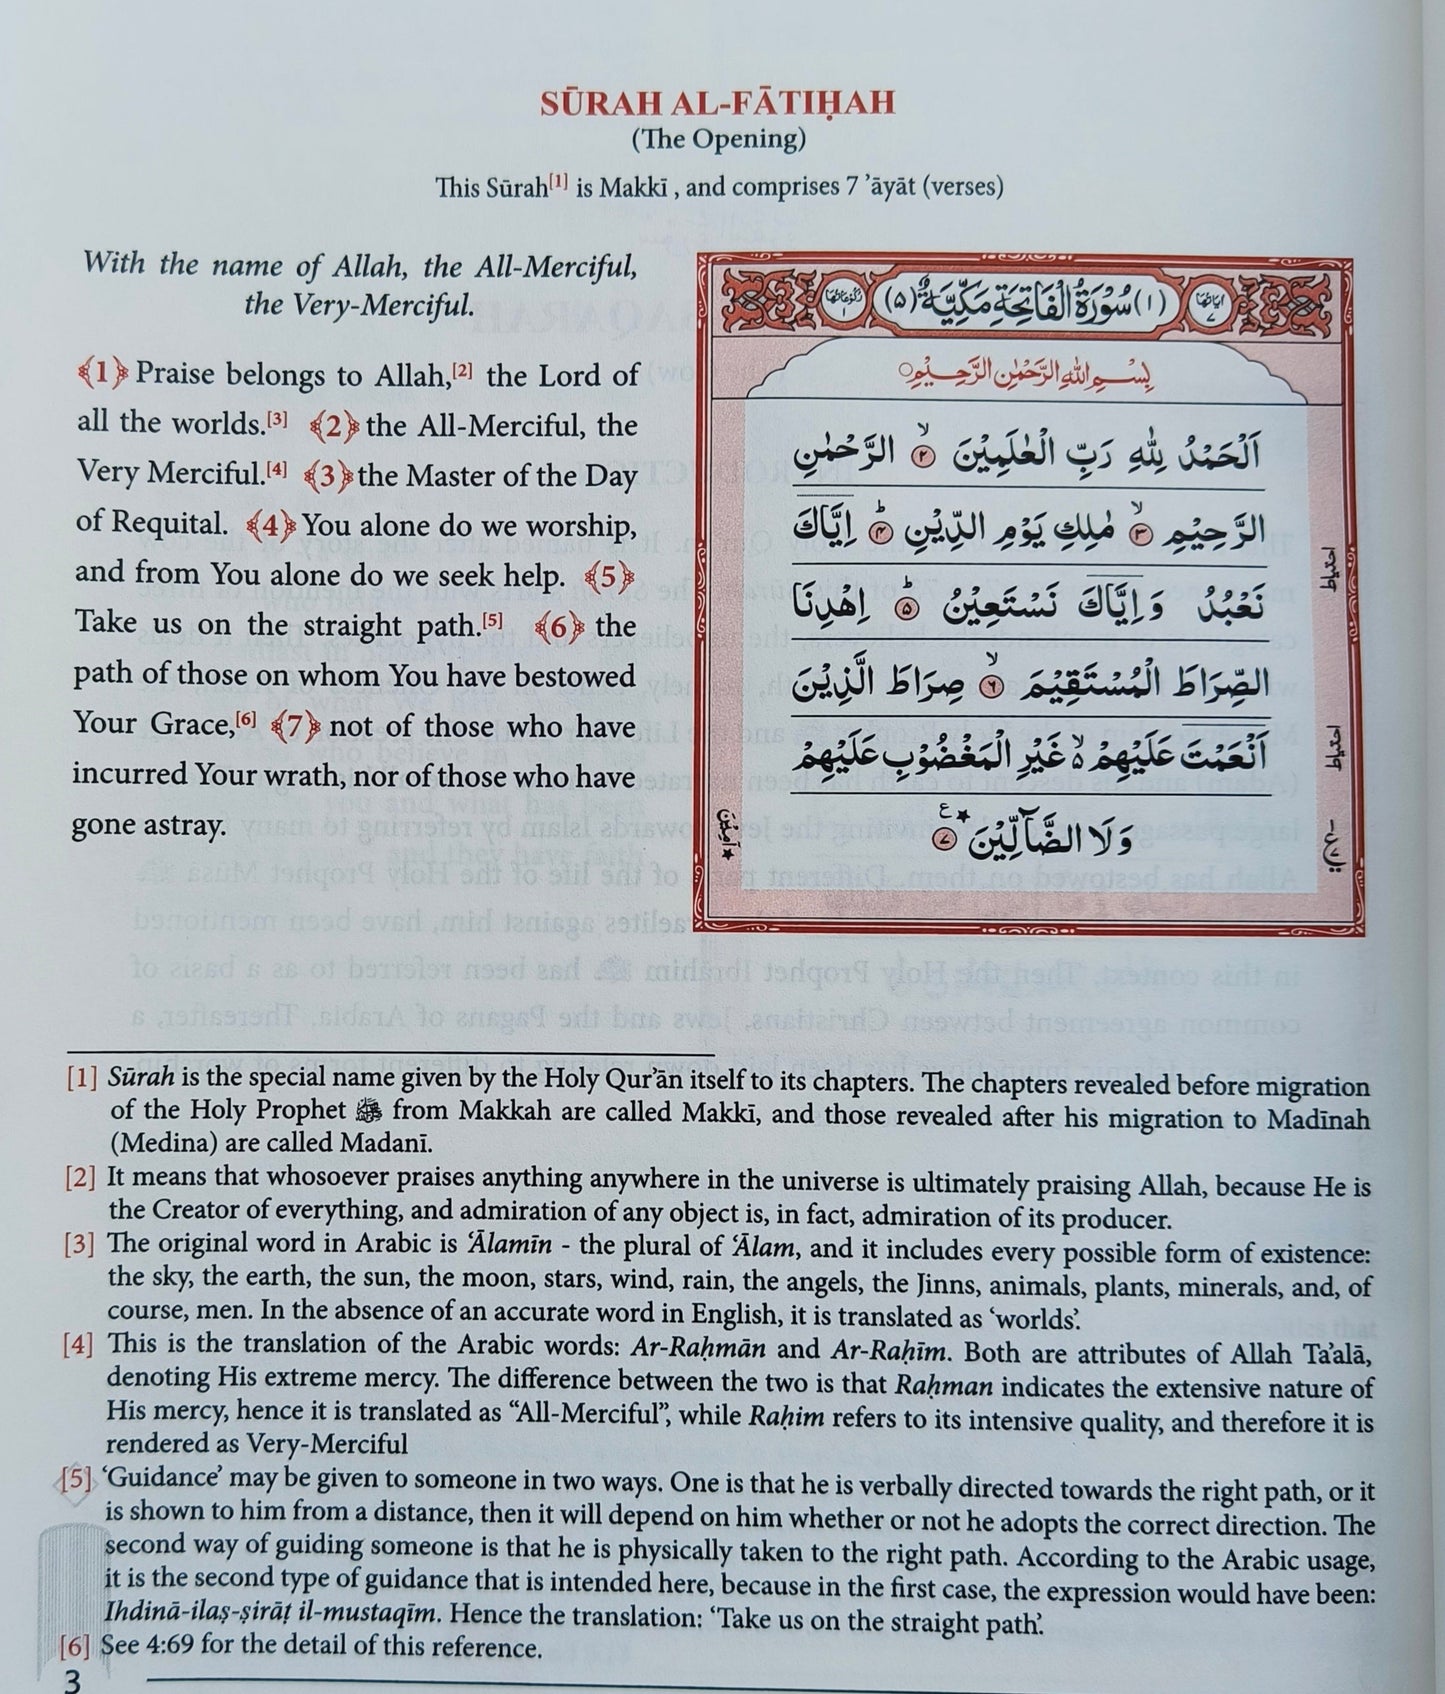 SŪRAH AL-FĀTIḤAH
(The Opening)
This Sūrah[1] is Makkī , and comprises 7 ’āyāt (verses)
With the name of Allah, the All-Merciful,
the Very-Merciful.
﴾1﴿ Praise belongs to Allah,[2] the Lord of
all the worlds.[3] ﴾2﴿ the All-Merciful, the
Very Merciful.[4] ﴾3﴿ the Master of the Day
of Requital. ﴾4﴿ You alone do we worship,
and from You alone do we seek help. ﴾5﴿
Take us on the straight path.[5] ﴾6﴿ the
path of those on whom You have bestowed
Your Grace,[6] ﴾7﴿ not of those who have
incurred Your wrath, nor of those who have
gone astray.
اٰيَاتُهَا ٧ (١) سُوْرَةُ الْفَاتِحَةِ مَكِّيَّةٌ (٥) رُكُوْعَاتُهَا ١
بِسْمِ اللّٰهِ الرَّحْمٰنِ الرَّحِيْمِ
اَلْحَمْدُ لِلّٰهِ رَبِّ الْعٰلَمِيْنَ ۙ ٢ الرَّحْمٰنِ
الرَّحِيْمِ ۙ ٣ مٰلِكِ يَوْمِ الدِّيْنِ ؕ ٤ اِيَّاكَ
نَعْبُدُ وَاِيَّاكَ نَسْتَعِيْنُ ؕ ٥ اِهْدِنَا
الصِّرَاطَ الْمُسْتَقِيْمَ ۙ ٦ صِرَاطَ الَّذِيْنَ
اَنْعَمْتَ عَلَيْهِمْ ۙ غَيْرِ الْمَغْضُوْبِ عَلَيْهِمْ
وَلَا الضَّآلِّيْنَ ★ ع ٧
احتياط
احتياط
★ اٰمِيْن
[1] Sūrah is the special name given by the Holy Qur’ān itself to its chapters. The chapters revealed before migration
of the Holy Prophet ﷺ from Makkah are called Makkī, and those revealed after his migration to Madīnah
(Medina) are called Madanī.
[2] It means that whosoever praises anything anywhere in the universe is ultimately praising Allah, because He is
the Creator of everything, and admiration of any object is, in fact, admiration of its producer.
[3] The original word in Arabic is ‘Ālamīn - the plural of ‘Ālam, and it includes every possible form of existence:
the sky, the earth, the sun, the moon, stars, wind, rain, the angels, the Jinns, animals, plants, minerals, and, of
course, men. In the absence of an accurate word in English, it is translated as ‘worlds’.
[4] This is the translation of the Arabic words: Ar-Raḥmān and Ar-Raḥīm. Both are attributes of Allah Ta’alā,
denoting His extreme mercy. The difference between the two is that Raḥman indicates the extensive nature of
His mercy, hence it is translated as “All-Merciful”, while Raḥim refers to its intensive quality, and therefore it is
rendered as Very-Merciful
[5] ‘Guidance’ may be given to someone in two ways. One is that he is verbally directed towards the right path, or it
is shown to him from a distance, then it will depend on him whether or not he adopts the correct direction. The
second way of guiding someone is that he is physically taken to the right path. According to the Arabic usage,
it is the second type of guidance that is intended here, because in the first case, the expression would have been:
Ihdinā-ilaṣ-ṣirāṭ il-mustaqīm. Hence the translation: ‘Take us on the straight path’.
[6] See 4:69 for the detail of this reference.
3